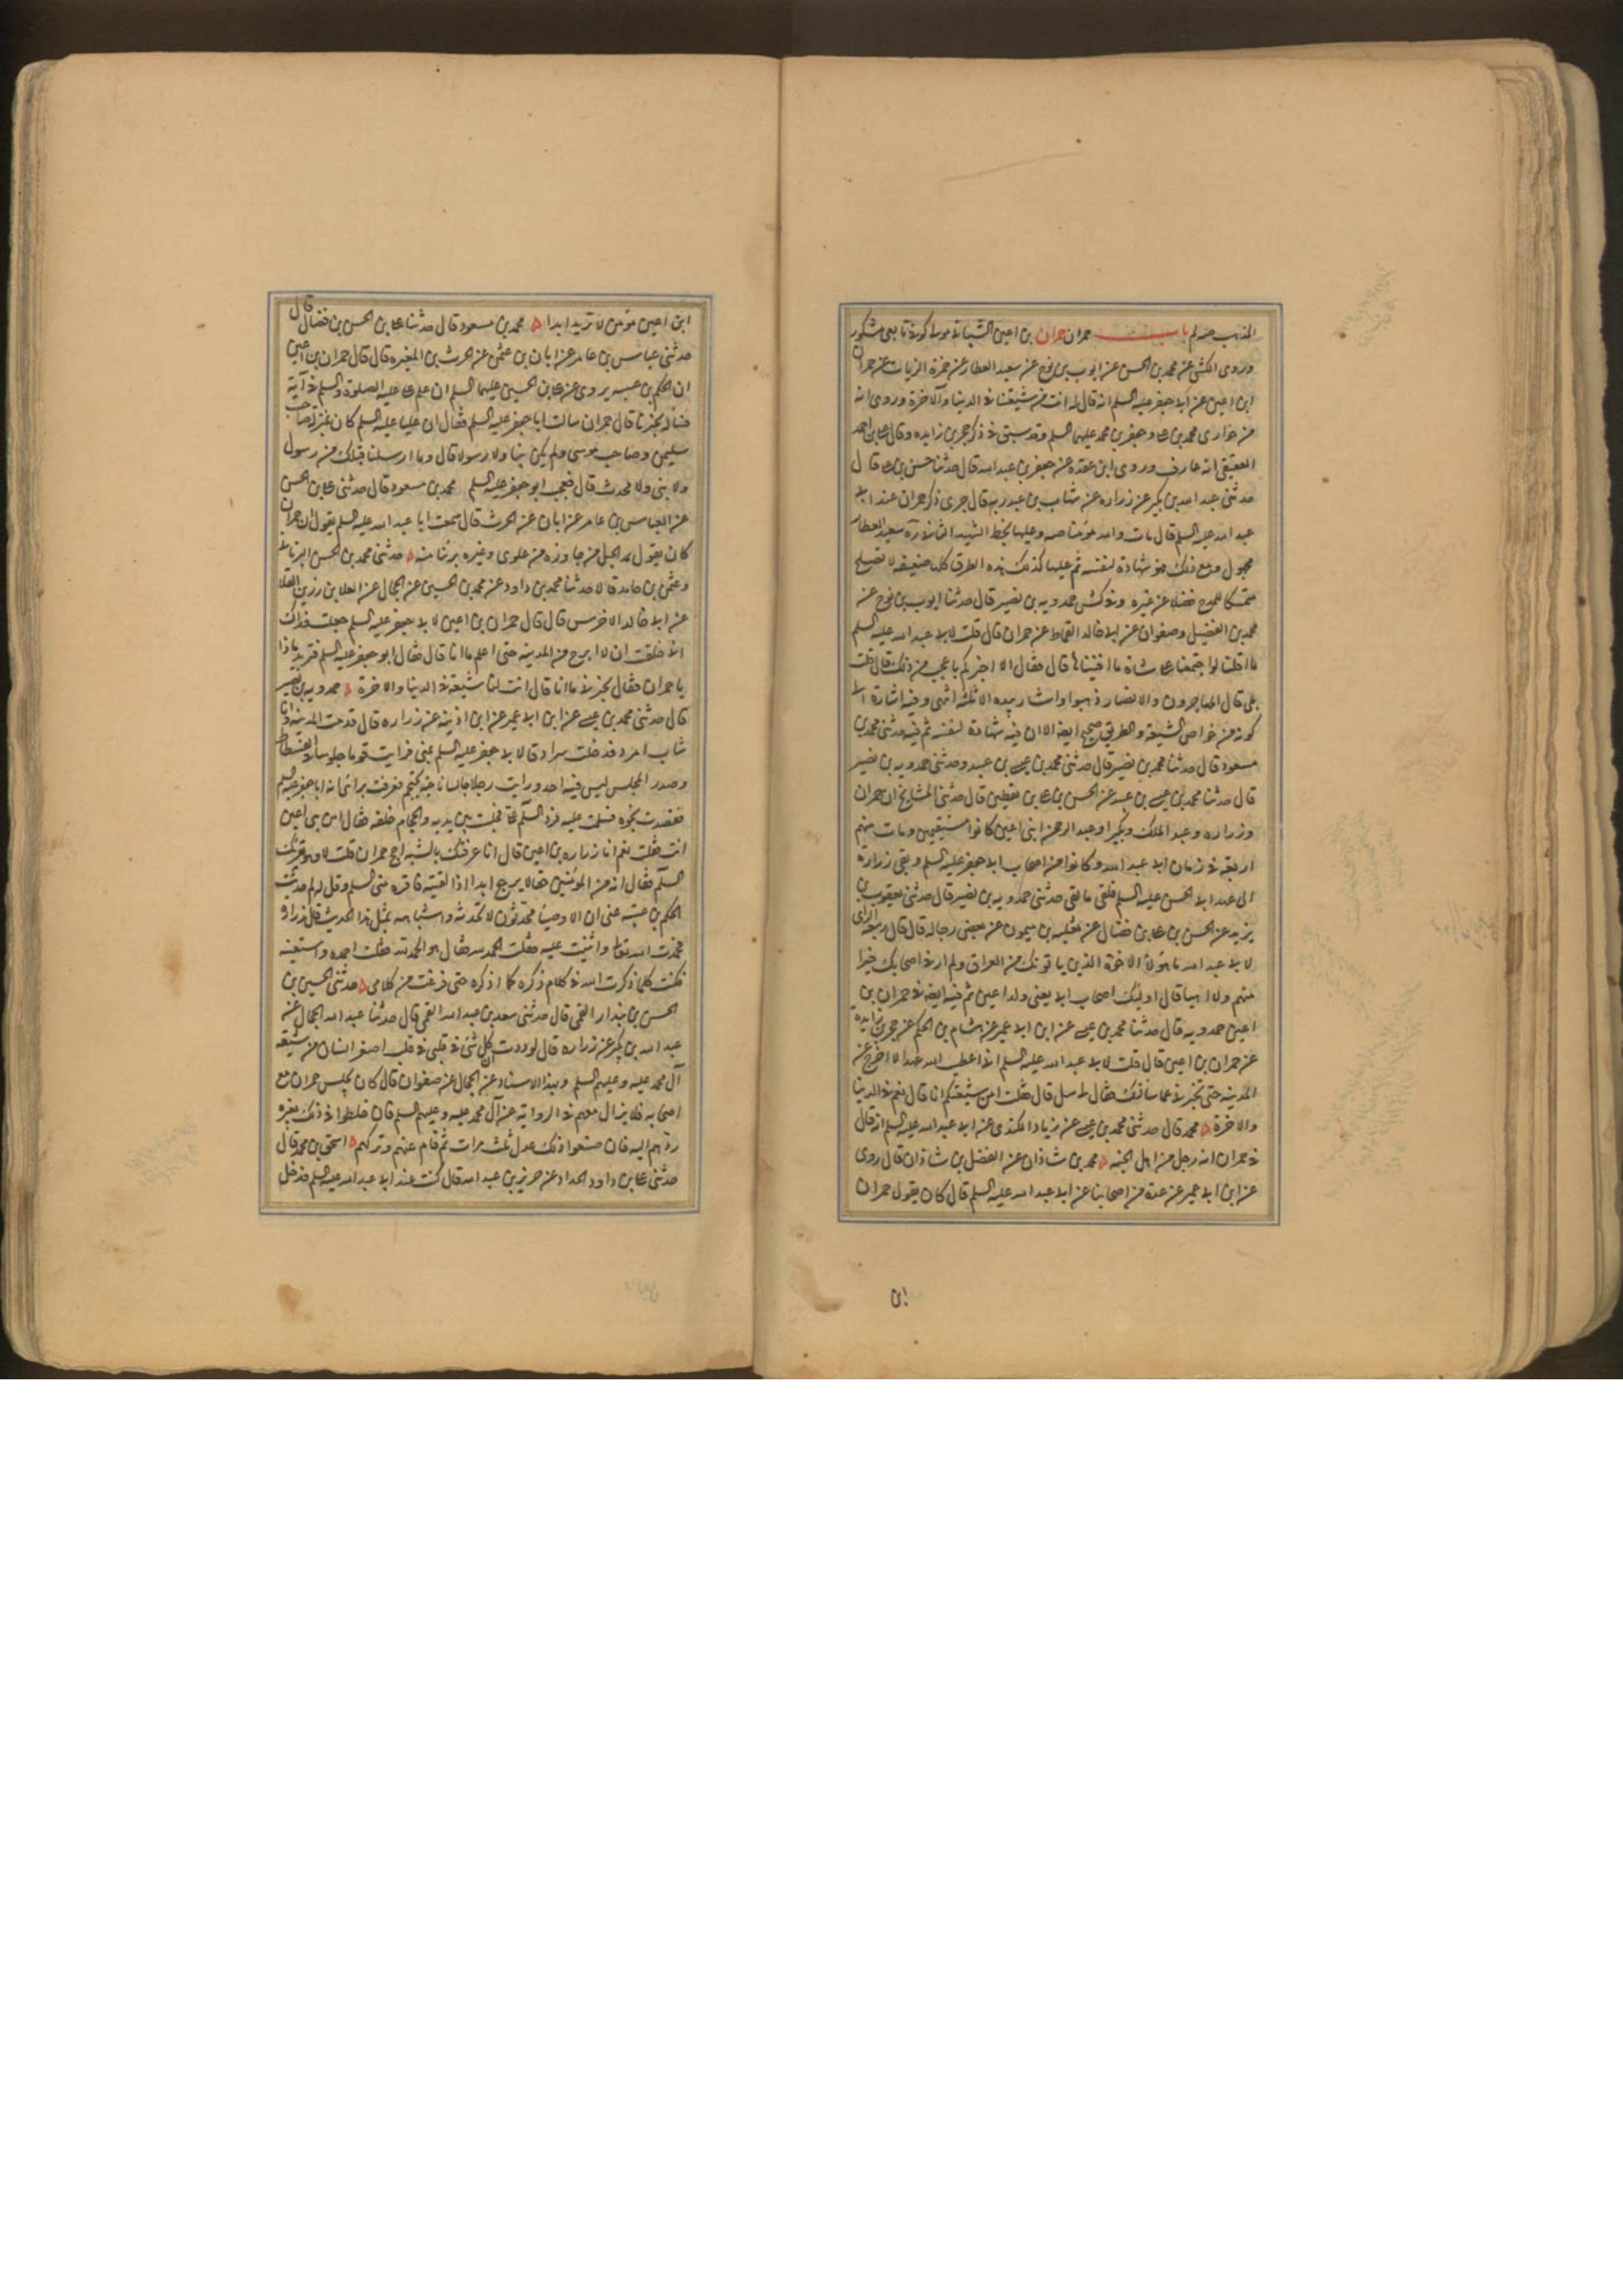 المذهب صه لم باب حمران حمران بن اعين الشيباني مولى كوفي تابعي مشكور
وروى الكشي عن محمد بن الحسن عن ايوب بن نوح عن سعيد العطار عن حمزة الزيات عن حمران
ابن اعين عن ابي جعفر عليه السلم انه قال له انت من شيعتنا في الدنيا والآخرة وروى انه
من حواري محمد بن علي وجعفر بن محمد عليهم السلم وقد سبق في ذكر حجر بن زايده وقال علي بن احمد
العقيقي انه عارف وروى ابن عقده عن جعفر بن عبد الله قال حدثنا حسن بن علي قال
حدثني عبد الله بن بكير عن زراره عن شهاب بن عبد ربه قال جرى ذكر حمران عند ابي
عبد الله عليه السلم قال مات والله مؤمنا صه وعليها بخط الشهيد الثاني سعيد العطار
مجهول ومع ذلك هو شهادة لنفسه ثم عليها كذلك هذه الطرق كلها ضعيفه لا تصلح
متمسكا للمدح فضلا عن غيره وفي كش حمدويه بن نصير قال حدثنا ايوب بن نوح عن
محمد بن الفضيل وصفوان عن ابي خالد القماط عن حمران قال قلت لابي عبد الله عليه السلم
ما اقلنا لو اجتمعنا على شاة ما افنيناها قال فقال الا اخبركم باعجب من ذلك قال قلت
بلى قال المهاجرون والانصار ذهبوا واشار بيده الا ثلثه انتهى وفيه اشارة الى
كونه من خواص الشيعة والطريق صحيح ايضا الا ان فيه شهادة لنفسه ثم فيه حدثني محمد بن
مسعود قال حدثنا محمد بن نصير قال حدثني محمد بن عيسى بن عبيد وحدثني حمدويه بن نصير
قال حدثنا محمد بن عيسى بن عبيد عن الحسن بن علي بن يقطين قال حدثني المشايخ ان حمران
وزراره وعبد الملك وبكيرا وعبد الرحمن ابني اعين كانوا مستقيمين ومات منهم
اربعة في زمان ابي عبد الله وكانوا من اصحاب ابي جعفر عليه السلم وبقي زرارة
الى عهد ابي الحسن عليه السلم فلقي ما لقي حدثني حمدويه بن نصير قال حدثني يعقوب بن
يزيد عن الحسن بن علي بن فضال عن ثعلبه بن ميمون عن بعض رجاله قال قال ربيعة الراي
لابي عبد الله ما هؤلاء الاخوة الذين ياتونك من العراق ولم ار في اصحابك خيرا
منهم ولا اهيا قال اولئك اصحاب ابي يعني ولد اعين ثم فيه ايضا في حمران بن
اعين حمدويه قال حدثنا محمد بن عيسى عن ابن ابي عمير عن هشام بن الحكم عن حجر بن زايده
عن حمران بن اعين قال قلت لابي عبد الله عليه السلم اني اعطيت الله عهدا لا اخرج عن
المدينه حتى تخبرني عما سالتك فقال لي سل قال فقلت امن شيعتكم انا قال نعم في الدنيا
والاخرة محمد قال حدثني محمد بن عيسى عن زياد الكندي عن ابي عبد الله عليه السلم انه قال
في حمران انه رجل من اهل الجنه محمد بن شاذان عن الفضل بن شاذان قال روى
عن ابن ابي عمير عن عدة من اصحابنا عن ابي عبد الله عليه السلم قال كان يقول حمران
ابن
ابن اعين مؤمن لا يرتد ابدا محمد بن مسعود قال حدثنا علي بن الحسن بن فضال قال
حدثني عباس بن عامر عن ابان بن عثمن عن الحرث بن المغيره قال قال حمران بن اعين
ان الحكم بن عيينه يروى عن علي بن الحسين عليهما السلم ان علم علي عليه الصلوة والسلم في آية
فساله يخبرنا قال حمران سالت ابا جعفر عليه السلم فقال ان عليا عليه السلم كان بمنزلة صاحب
سليمن وصاحب موسى ولم يكن نبيا ولا رسولا قال وما ارسلنا قبلك من رسول
ولا نبي ولا محدث قال فعجب ابو جعفر عليه السلم محمد بن مسعود قال حدثني علي بن الحسن
عن العباس بن عامر عن ابان عن الحرث قال سمعت ابا عبد الله عليه السلم يقول ان حمران
كان يقول مد الحبل من جاوزه من علوي وغيره برئنا منه حدثني محمد بن الحسن البرناني
وعثمن بن حامد قالا حدثنا محمد بن داود عن محمد بن الحسين عن الحجال عن العلا بن رزين القلا
عن ابي خالد الاخرس قال قال حمران بن اعين لابي جعفر عليه السلم جعلت فداك
اني حلفت ان لا ابرح من المدينه حتى اعلم ما انا قال فقال ابو جعفر عليه السلم فتريد ماذا
يا حمران فقال تخبرني ما انا قال انت لنا شيعة في الدنيا والاخرة حمدويه بن نصير
قال حدثني محمد بن عيسى عن ابن ابي عمير عن ابن اذينه عن زراره قال قدمت المدينه وانا
شاب امرد فدخلت سرادقا لابي جعفر عليه السلم بمنى فرايت قوما جلوسا في الفسطاط
وصدر المجلس ليس فيه احد ورايت رجلا جالسا ناحية يحتجم فعرفت برائي انه ابا جعفر عليه السلم
فقصدت نحوه فسلمت عليه فرد السلم علي فجلست بين يديه والحجام خلفه فقال امن بني اعين
انت فقلت نعم انا زراره بن اعين قال انا عرفتك بالشبه احج حمران قلت لا وهو يقرئك
السلم فقال انه من المؤمنين حقا لا يرجع ابدا اذا لقيته فاقره مني السلم وقل له لم حدثت
الحكم بن عتيبه عني ان الاوصياء محدثون لا تحدثه واشباهه بمثل هذا الحديث قال زراره
فحمدت الله تعالى واثنيت عليه فقلت الحمد لله فقال هو الحمد لله فقلت احمده واستعينه
فكنت كلما ذكرت الله في كلام ذكره كما اذكره حتى فرغت من كلامي حدثني الحسين بن
الحسن بن بندار القمي قال حدثني سعد بن عبد الله القمي قال حدثنا عبد الله الحجال عن
عبد الله بن بكير عن زراره قال لوددت ان كل شئ في قلبي في قلب اصغر انسان من شيعة
آل محمد عليه وعليهم السلم وبهذا الاسناد عن الحجال عن صفوان قال كان يجلس حمران مع
اصحابه فلا يزال معهم في الرواية عن آل محمد عليه وعليهم السلم فان خلطوا في ذلك بغيره
ردهم اليه فان صنعوا ذلك عدل ثلث مرات ثم قام عنهم وتركهم اسحق بن محمد قال
حدثني علي بن داود الحداد عن حريز بن عبد الله قال كنت عند ابي عبد الله عليه السلم فدخل